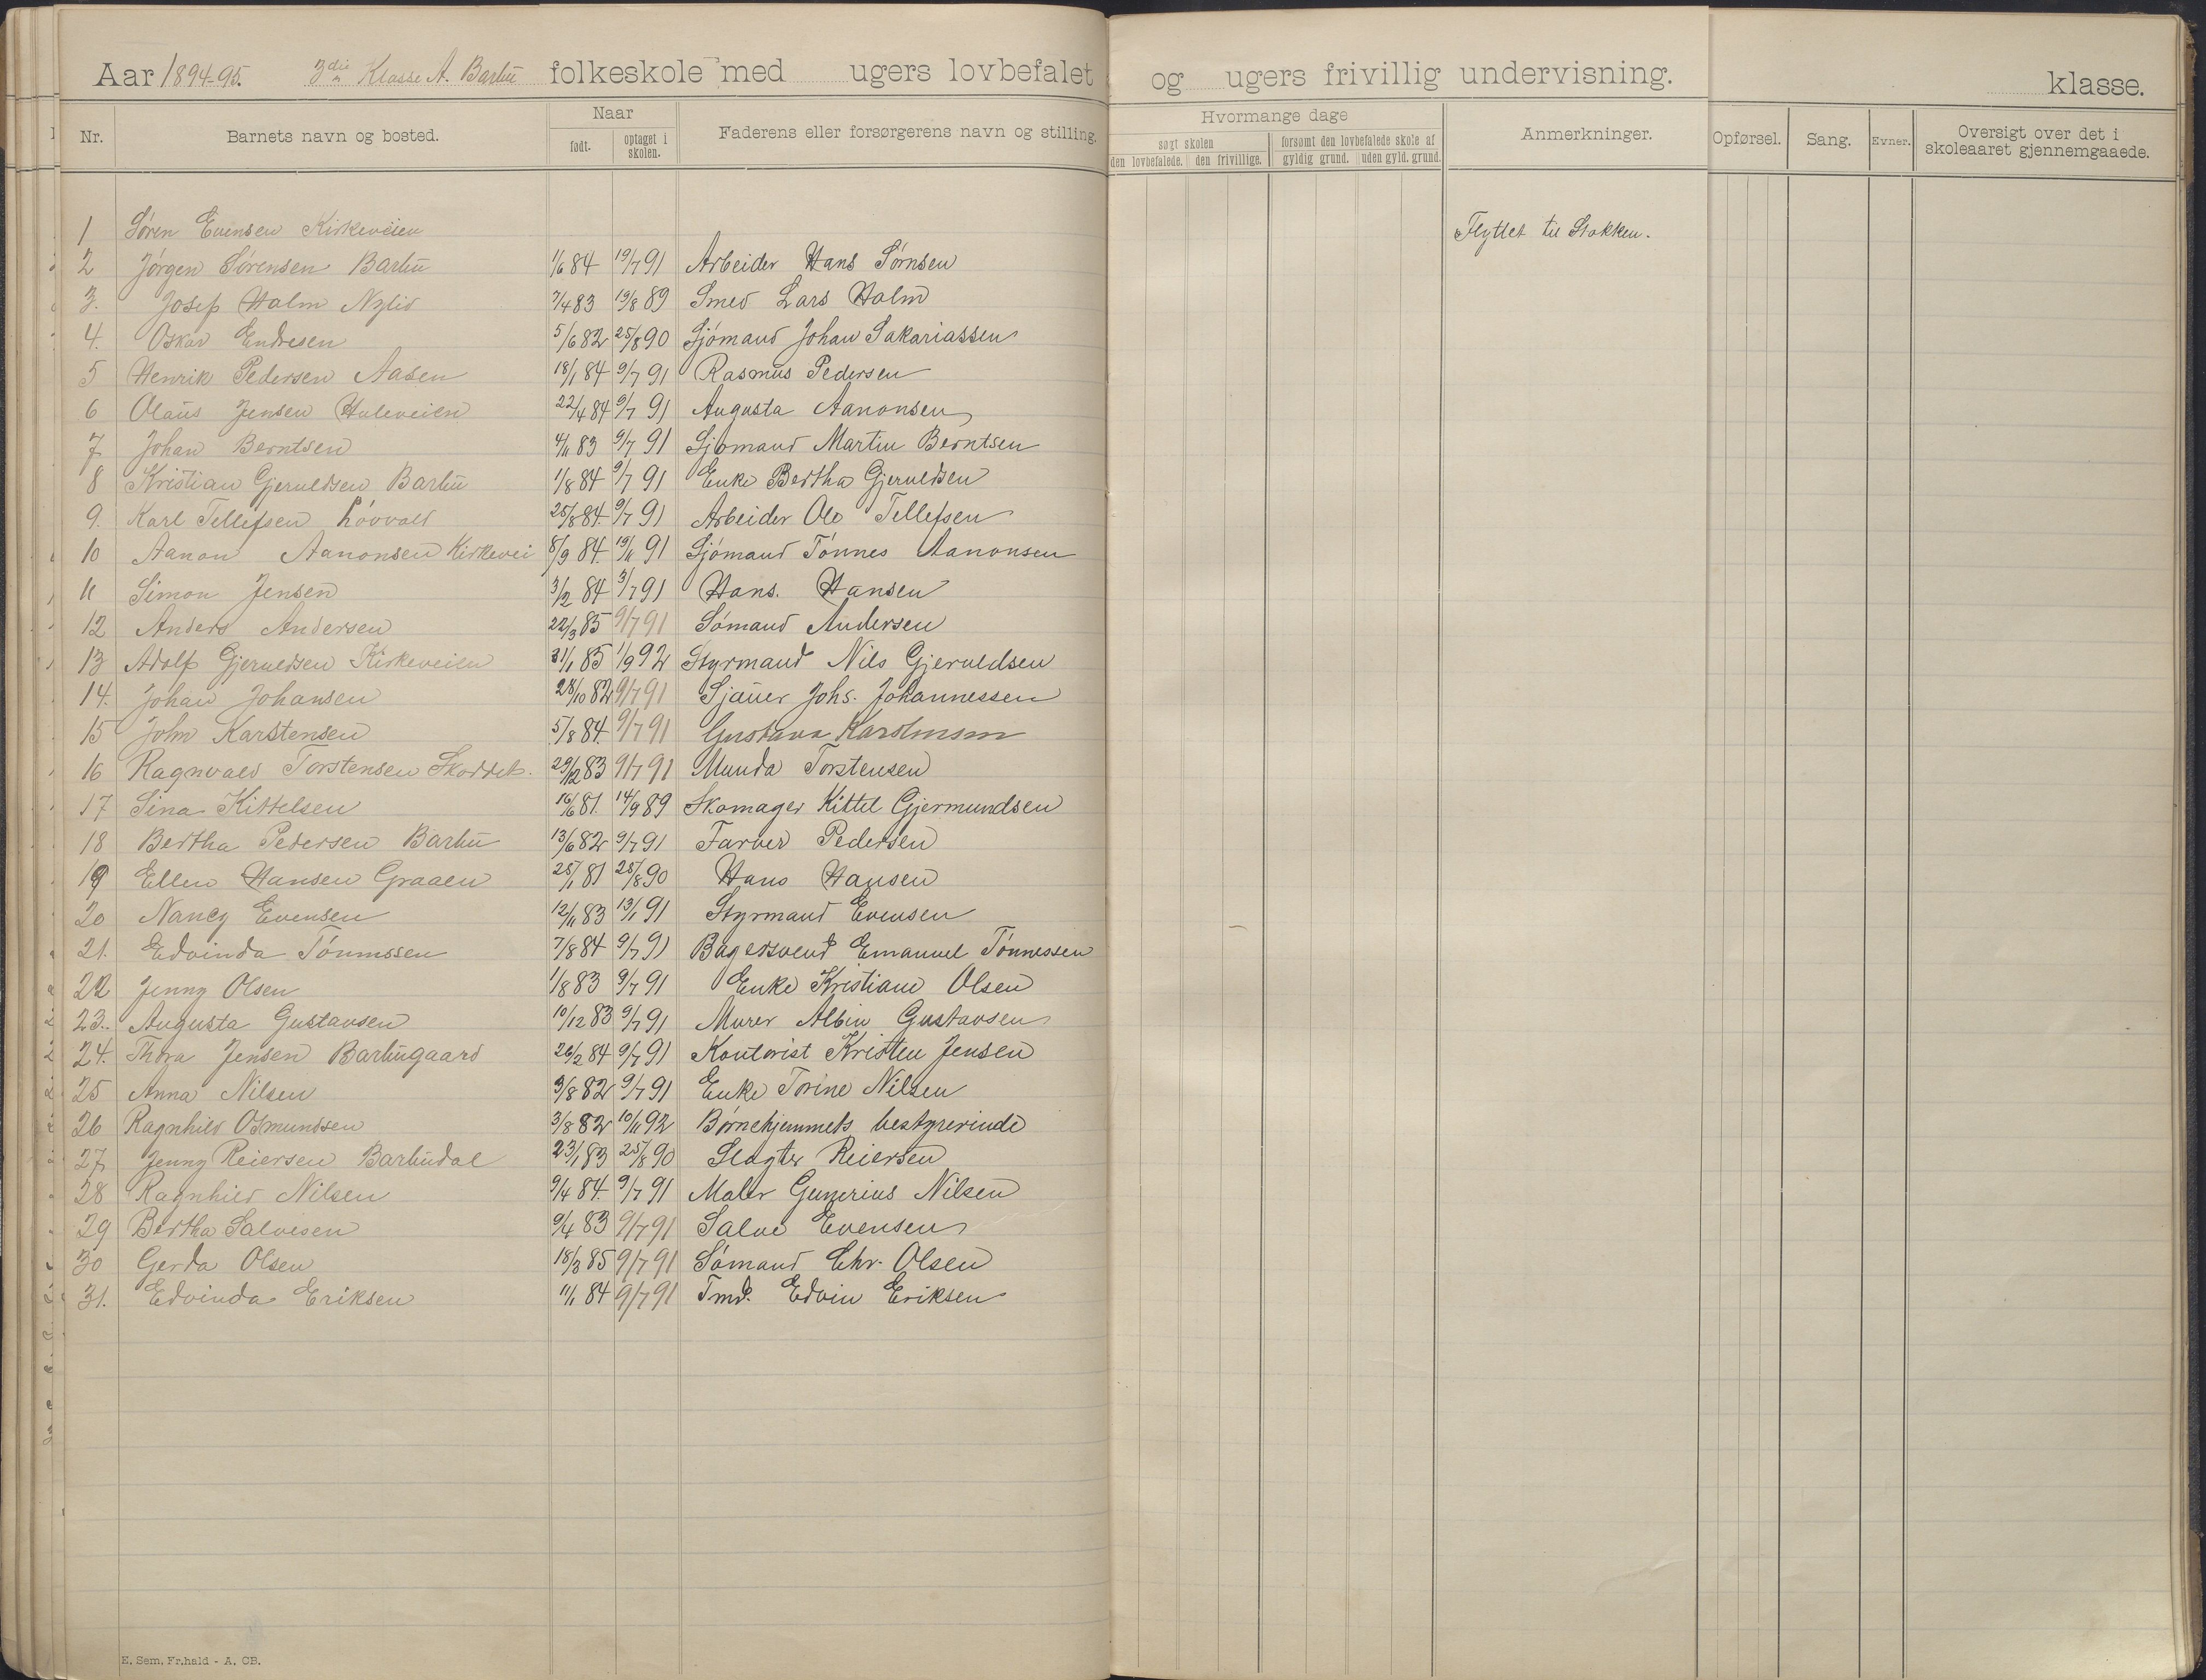 Aar 1894-95. 3die Klasse A. Barbu folkeskole med ugers lovbefalet og ugers frivillig undervisning. klasse.
Nr. Barnets navn og bosted. Naar født. optaget i skolen. Faderens eller forsørgerens navn og stilling. Hvormange dage søgt skolen den lovbefalede. den frivillige. forsømt den lovbefalede skole af gyldig grund. uden gyld. grund. Anmerkninger. Opførsel. Sang. Evner. Oversigt over det i skoleaaret gjennemgaaede.
1 Søren Evensen Kirkeveien Flyttet til Stokken.
2 Jørgen Sørensen Barbu 1/6 84 19/7 91 Arbeider Hans Sørnsen
3. Josef Holm Nylid 7/4 83 19/8 89 Smed Lars Holm
4. Oskar Endresen 5/6 82 25/8 90 Sjømand Johan Sakariassen
5 Henrik Pedersen Aasen 18/1 84 9/7 91 Rasmus Pedersen
6 Olaus Jensen Huleveien 22/4 84 9/7 91 Augusta Aanonsen
7 Johan Berntsen 4/11 83 9/7 91 Sjømand Martin Berntsen
8 Kristian Gjeruldsen Barbu 1/8 84 9/7 91 Enke Bertha Gjeruldsen
9. Karl Tellefsen Løvvold 25/8 84. 9/7 91 Arbeider Ole Tellefsen
10 Aanon Aanonsen Kirkevei 8/9 84. 19/11 91 Sjømand Tønnes Aanonsen
11 Simon Jensen 3/12 84 3/7 91 Hans. Hansen
12 Anders Andersen 22/3 85 9/7 91 Sømand Andersen
13 Adolf Gjeruldsen Kirkeveien 31/1 85 1/9 92 Styrmand Nils Gjeruldsen
14. Johan Johansen 28/10 82 9/7 91 Sjauer Johs. Johannessen
15 John Karstensen 5/8 84. 9/7 91 Gustava Karstensen
16 Ragnvald Torstensen Skoddet. 29/12 83 9/7 91 Munda Torstensen
17 Sina Kittelsen 16/6 81. 14/9 89 Skomager Kittel Gjermundsen
18 Bertha Pedersen Barbu 13/6 82 9/7 91 Farver Pedersen
19 Ellen Hansen Graaen 25/1 81 25/8 90 Hans Hansen
20 Nancy Evensen 12/11 83 13/1 91 Styrmand Evensen
21. Edvinda Tønnssen 7/8 84 9/7 91 Bagersvend Emanuel Tønnessen
22 Jenny Olsen 1/8 83 9/7 91 Enke Kristiane Olsen
23. Augusta Gustavsen 10/12 83 9/7 91 Murer Albin Gustavsen
24. Thora Jensen Barbugaard 26/2 84 9/7 91 Kontorist Kristen Jensen
25 Anna Nilsen 3/8 82 9/7 91 Enke Torine Nilsen
26 Ragnhild Osmundsen 3/8 82 10/11 92 Børnehjemmets bestyrerinde
27 Jenny Reiersen Barbudal 23/1 83 25/8 90 Slagter Reiersen
28 Ragnhild Nilsen 9/4 84. 9/7 91 Maler Gunerius Nilsen
29 Bertha Salvesen 9/4 83 9/7 91 Salve Evensen
30 Gerda Olsen 18/3 85 9/7 91 Sømand Chr. Olsen
31. Edvinda Eriksen 11/1 84 9/7 91 Tmd. Edvin Eriksen
E. Sem, Fr.hald - A. CB.